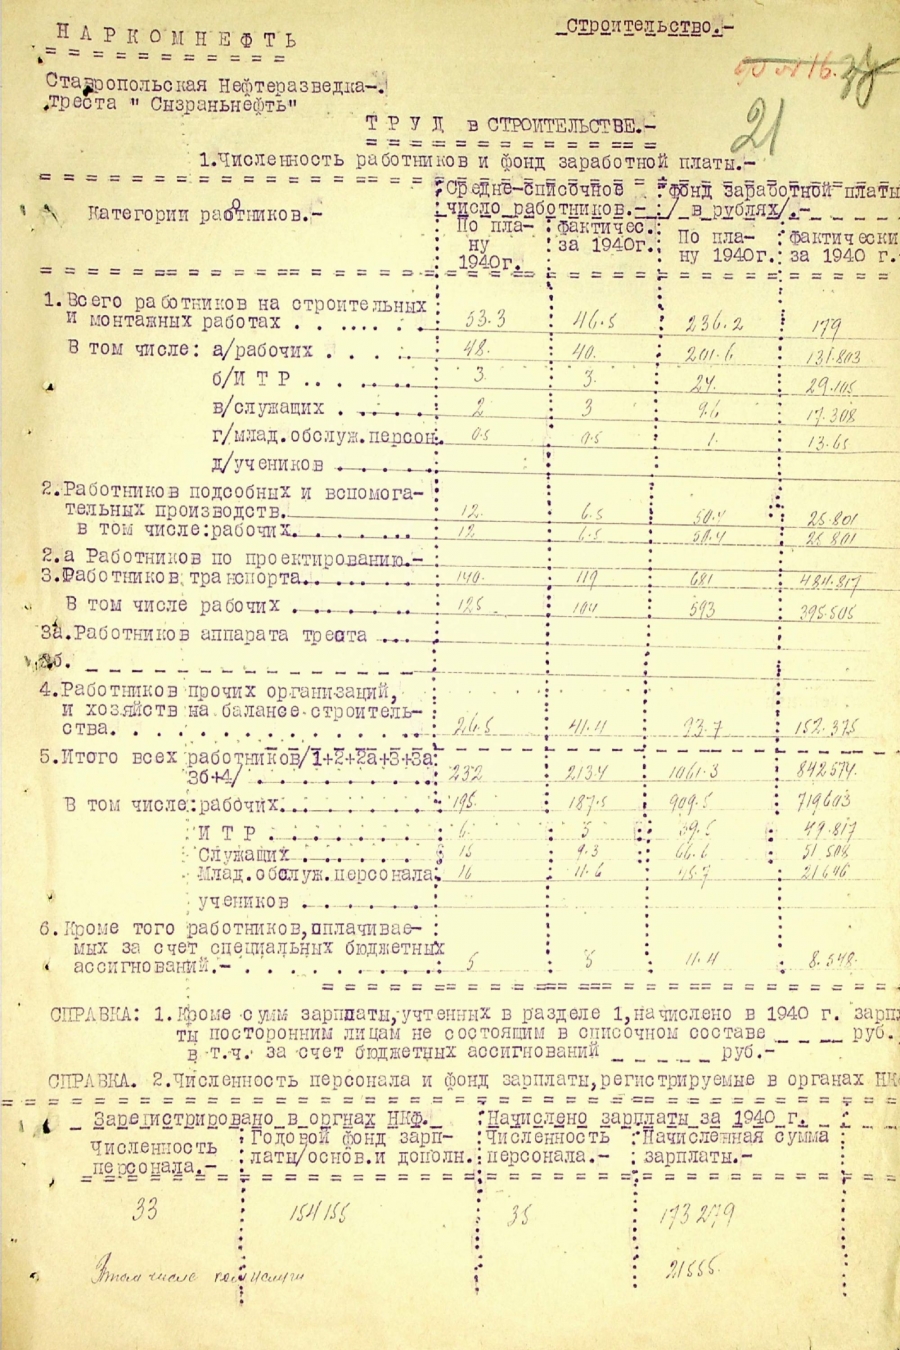 НАРКОМНЕФТЬ
Строительство.-
Ставропольская Нефтеразведка-.
треста " Сызраньнефть"
21
ТРУД в СТРОИТЕЛЬСТВЕ.-
1.Численность работников и фонд заработной платы.-
Категории работников.-
Средне-списочное число работников.-
фонд заработной платы / в рублях/.-
По плану 1940г.
фактичес. за 1940г.
По плану 1940г.
фактически за 1940 г.-
1.Всего работников на строительных
и монтажных работах . . .... . . 53.3 46.5 236.2 179
В том числе: а/рабочих . . . . . 48. 40. 201.6 131.803
б/И Т Р .. . .. ... 3. 3. 24. 29.105
в/служащих . ... .. 2 3 9.6 17.308
г/млад.обслуж.персон. 0.5 0.5 1. 13.65
д/учеников . . . . . .
2.Работников подсобных и вспомога-
тельных производств. 12. 6.5 50.4 25.801
в том числе:рабочих. . . . . . 12 6.5 50.4 25 801
2.а Работников по проектированию.-
3.Работников транспорта.. . . . . . 140. 119 681 484.817
В том числе рабочих . . . . . . 125 104 593 395.505
3а.Работников аппарата треста ... .
3б.
4.Работников прочих организаций,
и хозяйств на балансе строитель-
ства. . . . . . . . . . . . . . 26.5 41.4 93.7 152.375
5.Итого всех работников/1+2+2а+3+3а
3б+4/ . . . . . . . . . 232 213.4 1061.3 842574.
В том числе:рабочих. . . . . . . 195. 187.5 909.5 719603
И Т Р . . . . . . . 6. 5 39.5 49.817
Служащих . . . . . . 15 9.3 66.6 51 508
Млад.обслуж.персонала. 16 11.6 45.7 21646
учеников . . . . . .
6.Кроме того работников,оплачивае-
мых за счет специальных бюджетных
ассигнований.- . . . . . . . . . 5 5 11.4 8.548.
СПРАВКА: 1.Кроме сумм зарплаты,учтенных в разделе 1,начислено в 1940 г. зарп
ты посторонним лицам не состоящим в списочном составе _ _ _ руб.
в т.ч. за счет бюджетных ассигнований _ _ _ _ руб.-
СПРАВКА. 2.Численность персонала и фонд зарплаты,регистрируемые в органах НК
Зарегистрировано в оргнах НКФ.
Начислено зарплаты за 1940 г.
Численность персонала.-
Годовой фонд зарплаты/основ.и дополн.
Численность персонала.-
Начисленная сумма зарплаты.-
33 154155 35 173279
В том числе
21555.